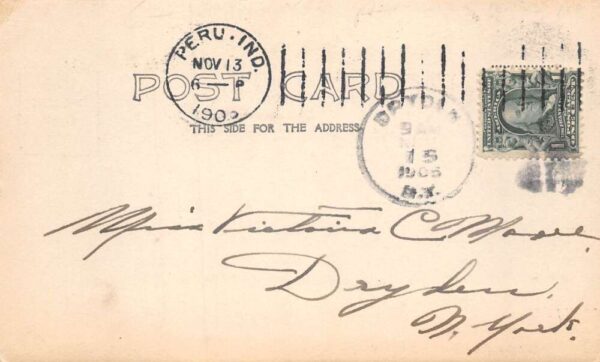 PERU. IND.
NOV 13
6 – P
190
POST CARD
THIS SIDE FOR THE ADDRESS
DRYDEN
9 AM
15
1905
N.Y.
Miss Victoria C Moore
Dryden.
N. York.